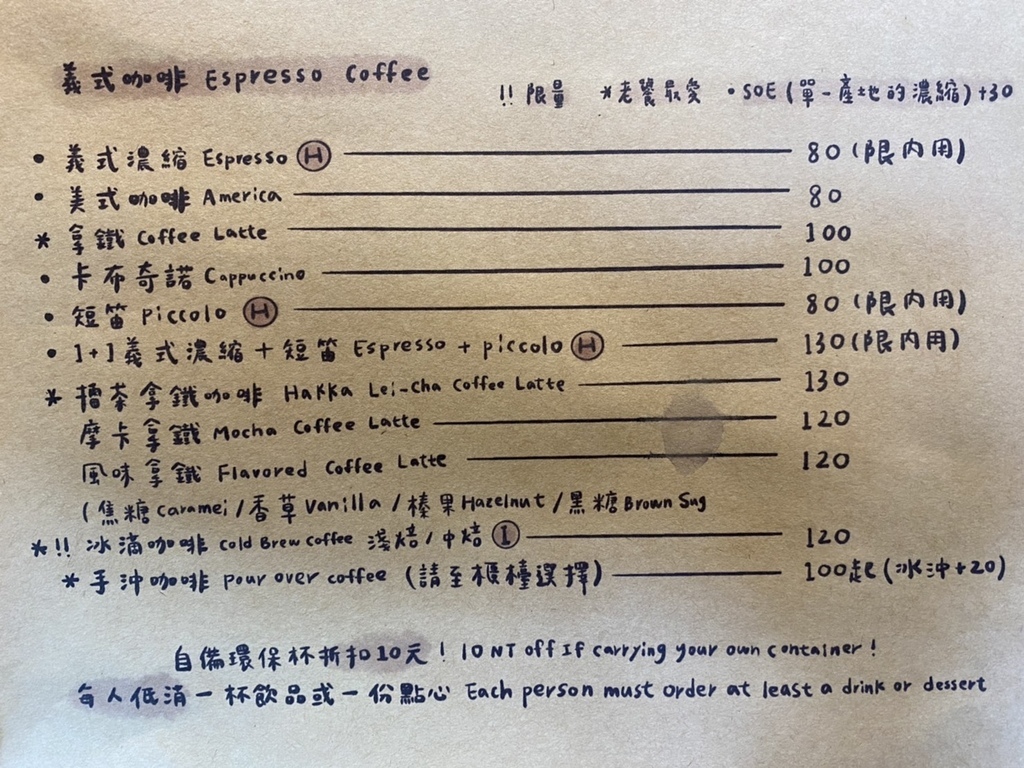 義式咖啡 Espresso Coffee
!! 限量 *老饕最愛 •SOE(單一產地的濃縮)+30
• 義式濃縮 Espresso Ⓗ 80(限內用)
• 美式咖啡 America 80
* 拿鐵 Coffee Latte 100
• 卡布奇諾 Cappuccino 100
• 短笛 Piccolo Ⓗ 80(限內用)
• 1+1義式濃縮+短笛 Espresso + piccolo Ⓗ 130(限內用)
* 擂茶拿鐵咖啡 Hakka Lei-cha Coffee Latte 130
摩卡拿鐵 Mocha Coffee Latte 120
風味拿鐵 Flavored Coffee Latte 120
(焦糖 Caramei/香草 Vanilla/榛果 Hazelnut/黑糖 Brown Sug
*!! 冰滴咖啡 Cold Brew coffee 淺焙/中焙 Ⓘ 120
* 手沖咖啡 pour over coffee (請至櫃檯選擇) 100起(冰沖+20)
自備環保杯折扣10元!10 NT off If carrying your own container!
每人低消一杯飲品或一份點心 Each person must order at least a drink or dessert